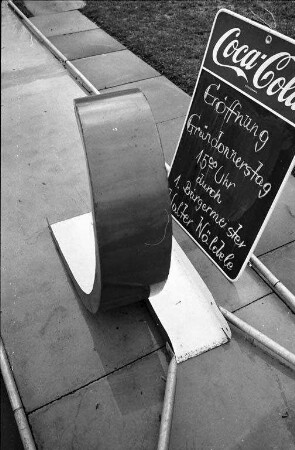 Coca-Cola
Eröffnung
Gründonnerstag
15⁰⁰ Uhr
durch
1. Bürgermeister
Walter Näldele